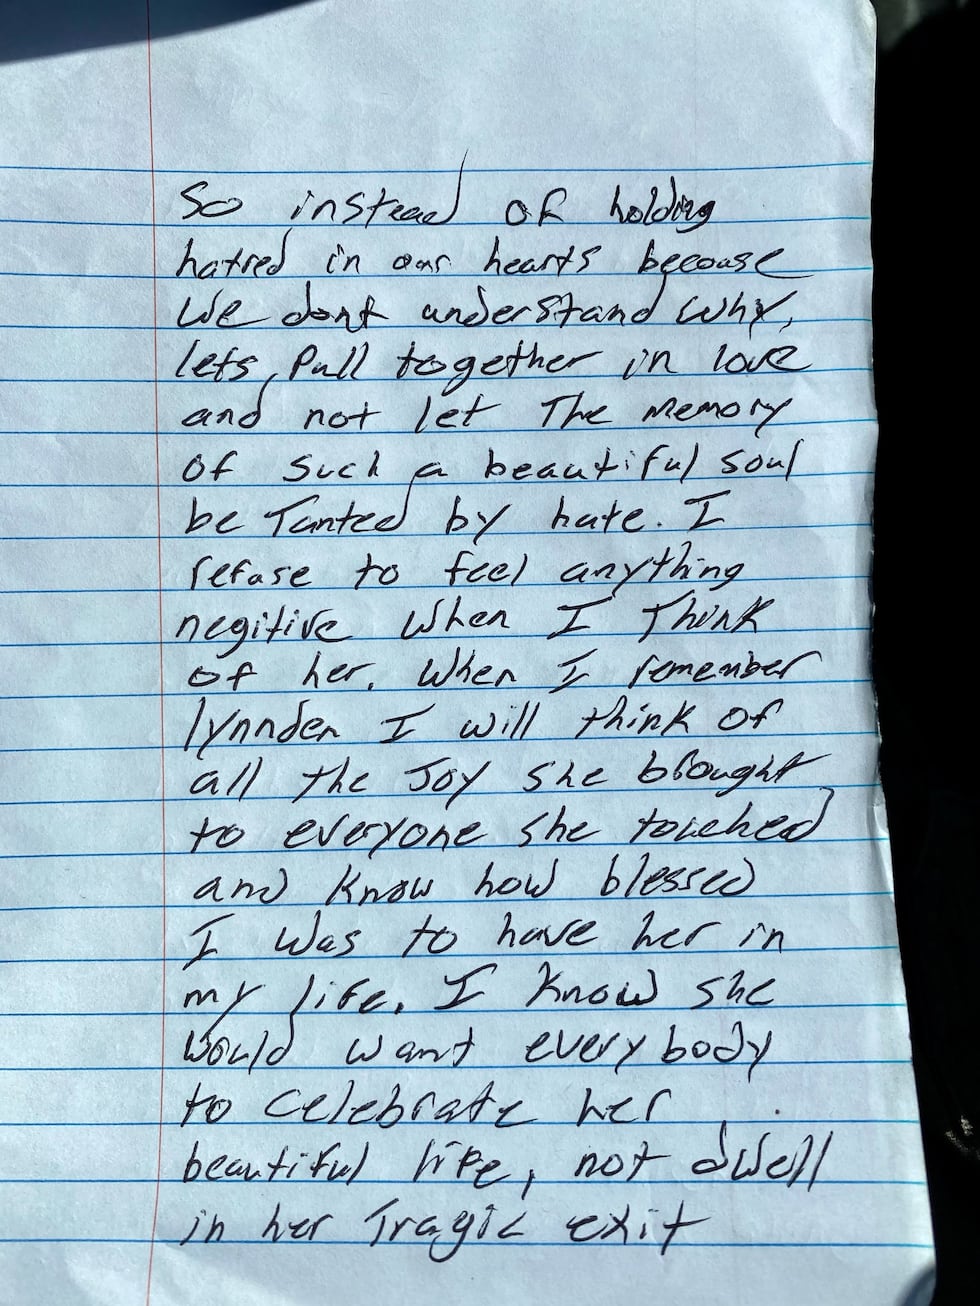 So instead of holding
hatred in our hearts because
We dont understand why,
lets, Pull together in love
and not let The memory
of such a beautiful soul
be Tanted by hate. I
refuse to feel anything
negitive when I Think
of her. When I remember
lynnden I will think of
all the Joy she brought
to everyone she touched
and know how blessed
I was to have her in
my life. I know she
would want everybody
to celebrate her
beautiful life, not dwell
in her Tragic exit